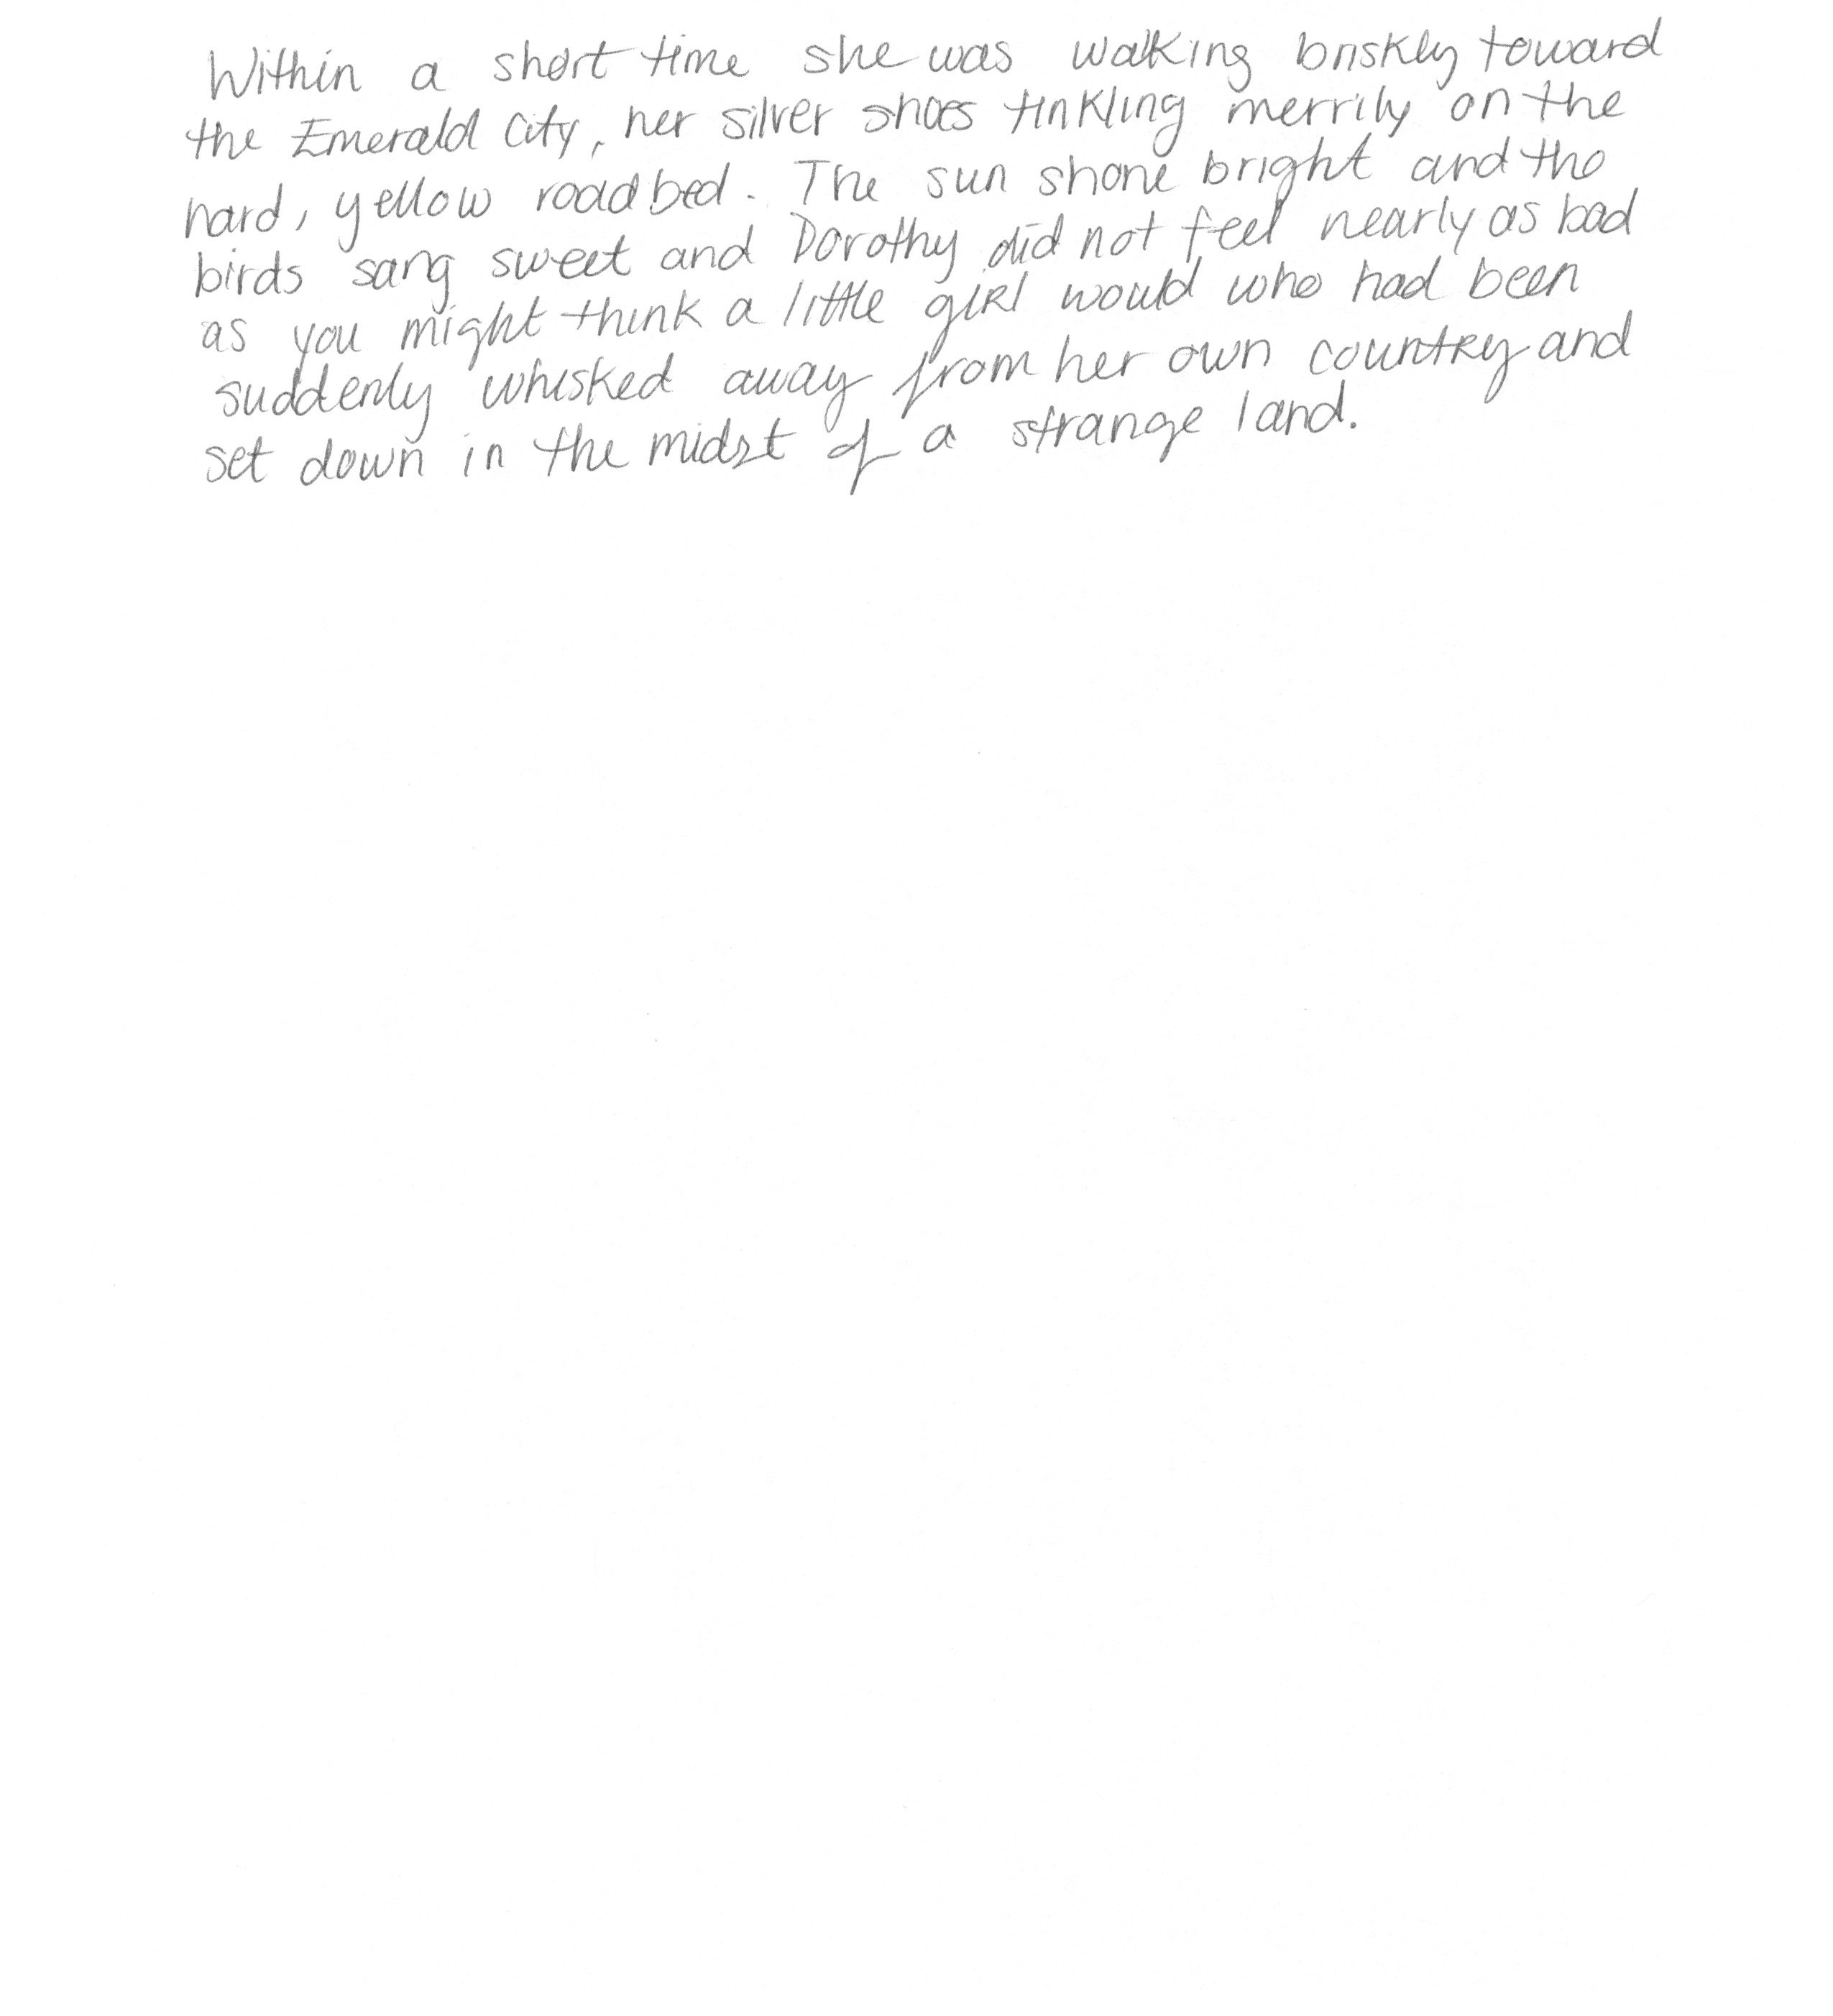 Within a short time she was walking briskly toward
the Emerald City, her silver shoes tinkling merrily on the
hard, yellow roadbed. The sun shone bright and the
birds sang sweet and Dorothy did not feel nearly as bad
as you might think a little girl would who had been
suddenly whisked away from her own country and
set down in the midst of a strange land.